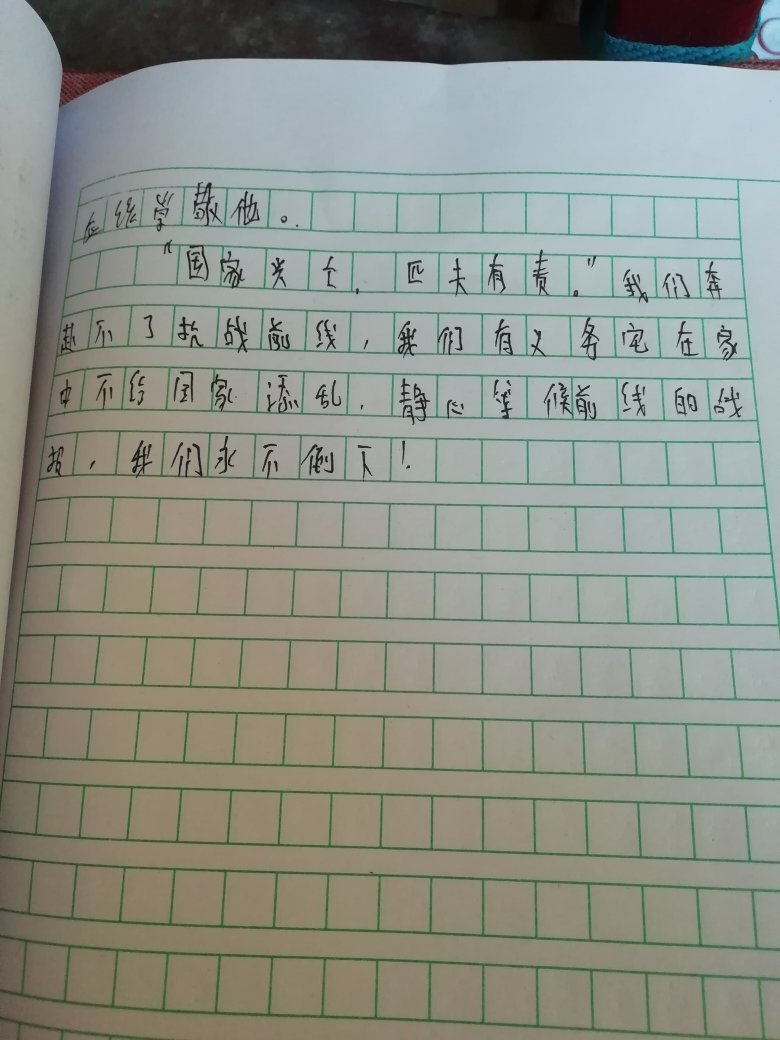 敬他。
“国家兴亡,匹夫有责。”我们奔
赴不了抗战前线,我们有义务宅在家
中不给国家添乱,静心等候前线的战
报,我们永不倒下!